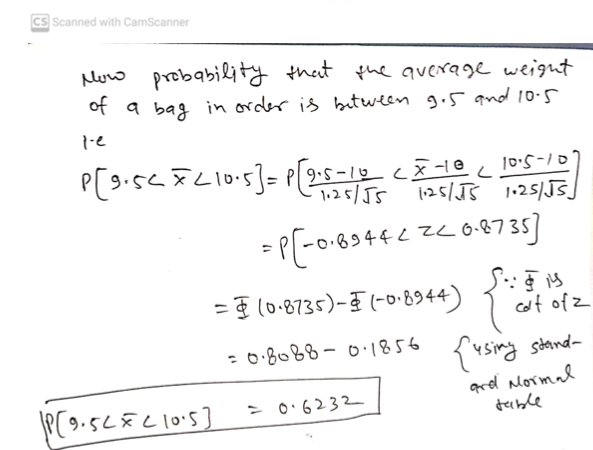 CS Scanned with CamScanner
Now probability that the average weight
of a bag in order is between 9.5 and 10.5
i-e
P[9.5< x̄ <10.5] = P[(9.5-10)/(1.25/√5) < (x̄-10)/(1.25/√5) < (10.5-10)/(1.25/√5)]
= P[-0.8944 < Z < 0.8735]
= Φ(0.8735) - Φ(-0.8944) {∵ Φ is
cdf of z
= 0.8088 - 0.1856 {using stand-
ard Normal
table
P[9.5< x̄ <10.5] = 0.6232